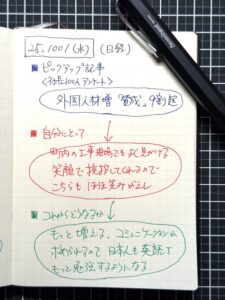 25.1001(水) (日経)
■ピックアップ記事
<社長100人アンケート>
外国人材増「賛成」9割超
■自分にとって
町内の工事現場でもよく見かける
笑顔で挨拶してくれるので
こちらもほほ笑みがえし
■これからどうなるか
もっと増える、コミュニケーションが
求められるので日本人も英語を
もっと勉強するようになる